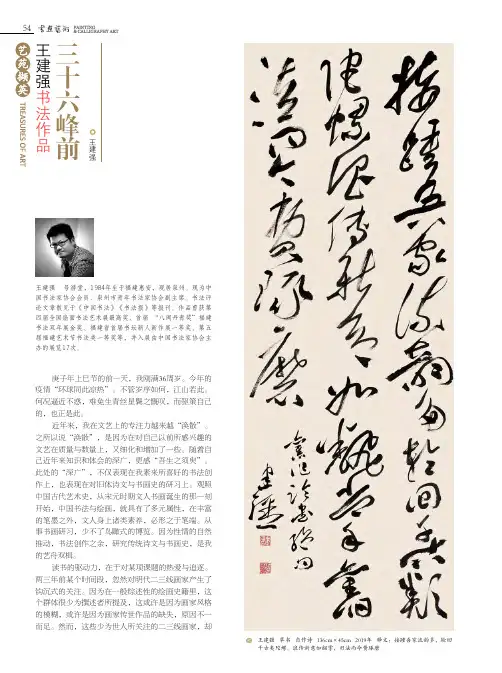 54 书画艺术 PAINTING
& CALLIGRAPHY ART
艺苑撷英 TREASURES OF ART
三十六峰前
王建强书法作品
王建强
王建强 号榕堂，1984年生于福建惠安，现居泉州。现为中
国书法家协会会员、泉州市青年书法家协会副主席。书法评
论文章散见于《中国书法》《书法报》等报刊。作品曾获第
四届全国扇面书法艺术展最高奖、首届“八闽丹青奖”福建
书法双年展金奖、福建省首届书坛新人新作展一等奖、第五
届福建艺术节书法类一等奖等，并入展由中国书法家协会主
办的展览17次。
庚子年上巳节的前一天，我刚满36周岁。今年的
疫情“环球同此凉热”。不管岁序如何，江山若此，
何况逼近不惑，难免生青丝星鬓之慨叹，而聚策自己
的，也正是此。
近年来，我在文艺上的专注力越来越“涣散”。
之所以说“涣散”，是因为在对自己以前所感兴趣的
文艺在质量与数量上，又细化和增加了一些。随着自
己近年来知识和体会的深广，更感“吾生之须臾”。
此处的“深广”，不仅表现在我素来所喜好的书法创
作上，也表现在对旧体诗文与书画史的研习上。观照
中国古代艺术史，从宋元时期文人书画诞生的那一刻
开始，中国书法与绘画，就具有了多元属性，在丰富
的笔墨之外，文人身上诸类素养，必形之于笔端。从
事书画研习，少不了鸟瞰式的博览。因为性情的自然
推动，书法创作之余，研究传统诗文与书画史，是我
的艺舟双楫。
读书的驱动力，在于对某项课题的热爱与追逐。
两三年前某个时间段，忽然对明代二三线画家产生了
钩沉式的关注。因为在一般综述性的绘画史籍里，这
个群体很少为撰述者所提及，这或许是因为画家风格
的模糊，或许是因为画家传世作品的缺失，原因不一
而足。然而，这些少为世人所关注的二三线画家，却
王建强 草书 自作诗 136cm×45cm 2019年 释文：接踵吾家流韵多，轮回
千古类陀螺。